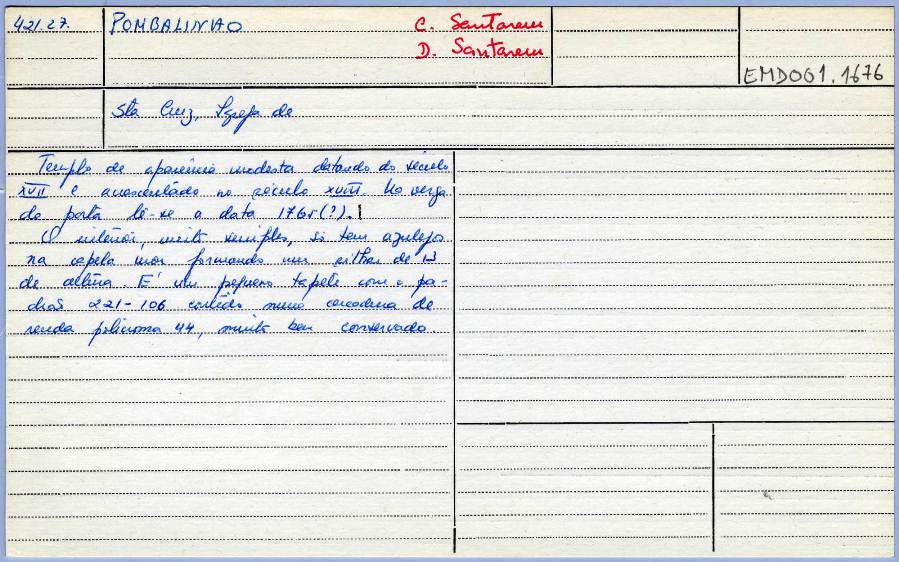 421.27. POMBALINHO C. Santarem
D. Santarem
EMD001.1676
Sta Cruz, Igreja de
Templo de aparência modesta datando do século
XVII e acrescentado no século XVIII. Na verga
da porta lê-se a data 1765(?).
O interior, muito simples, só tem azulejos
na capela mor formando um silhar de 13
de altura. É um pequeno tapete com o pa-
drão 221-106 contido numa cercadura de
renda policroma 44, muito bem conservado.